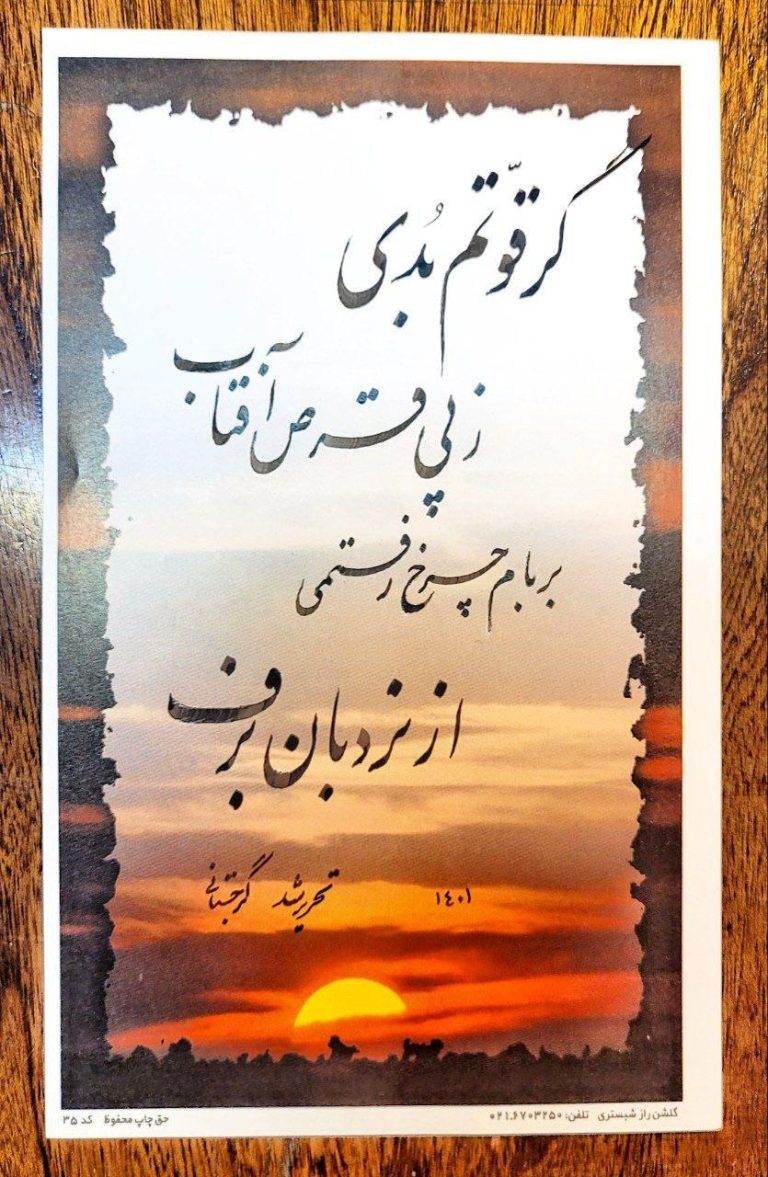 گر قوّتم بُدی
ز پی قرص آفتاب
بر بام چرخ رفتمی
از نردبان برف
۱۴۰۱ تحریر شد گرجستانی
گلشن راز شبستری تلفن: ۰۲۱.۶۷۰۳۲۵۰ حق چاپ محفوظ کد ۳۵